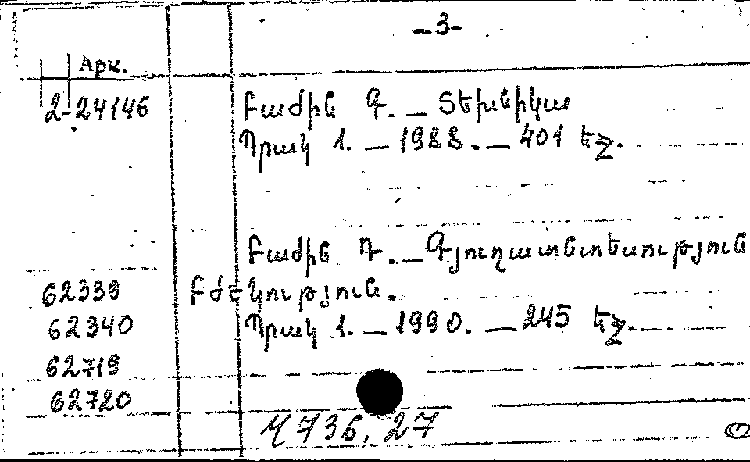 -3-
Арк.
2-24146 Բաժին Գ. — Տեխնիկա
Պրակ 1. — 1988. — 401 եջ.
Բաժին Դ. — Գյուղատնտեսություն
62339 Բժշկություն.
62340 Պրակ 1. — 1990. — 245 եջ.
62719
62720
Ч 736, 27